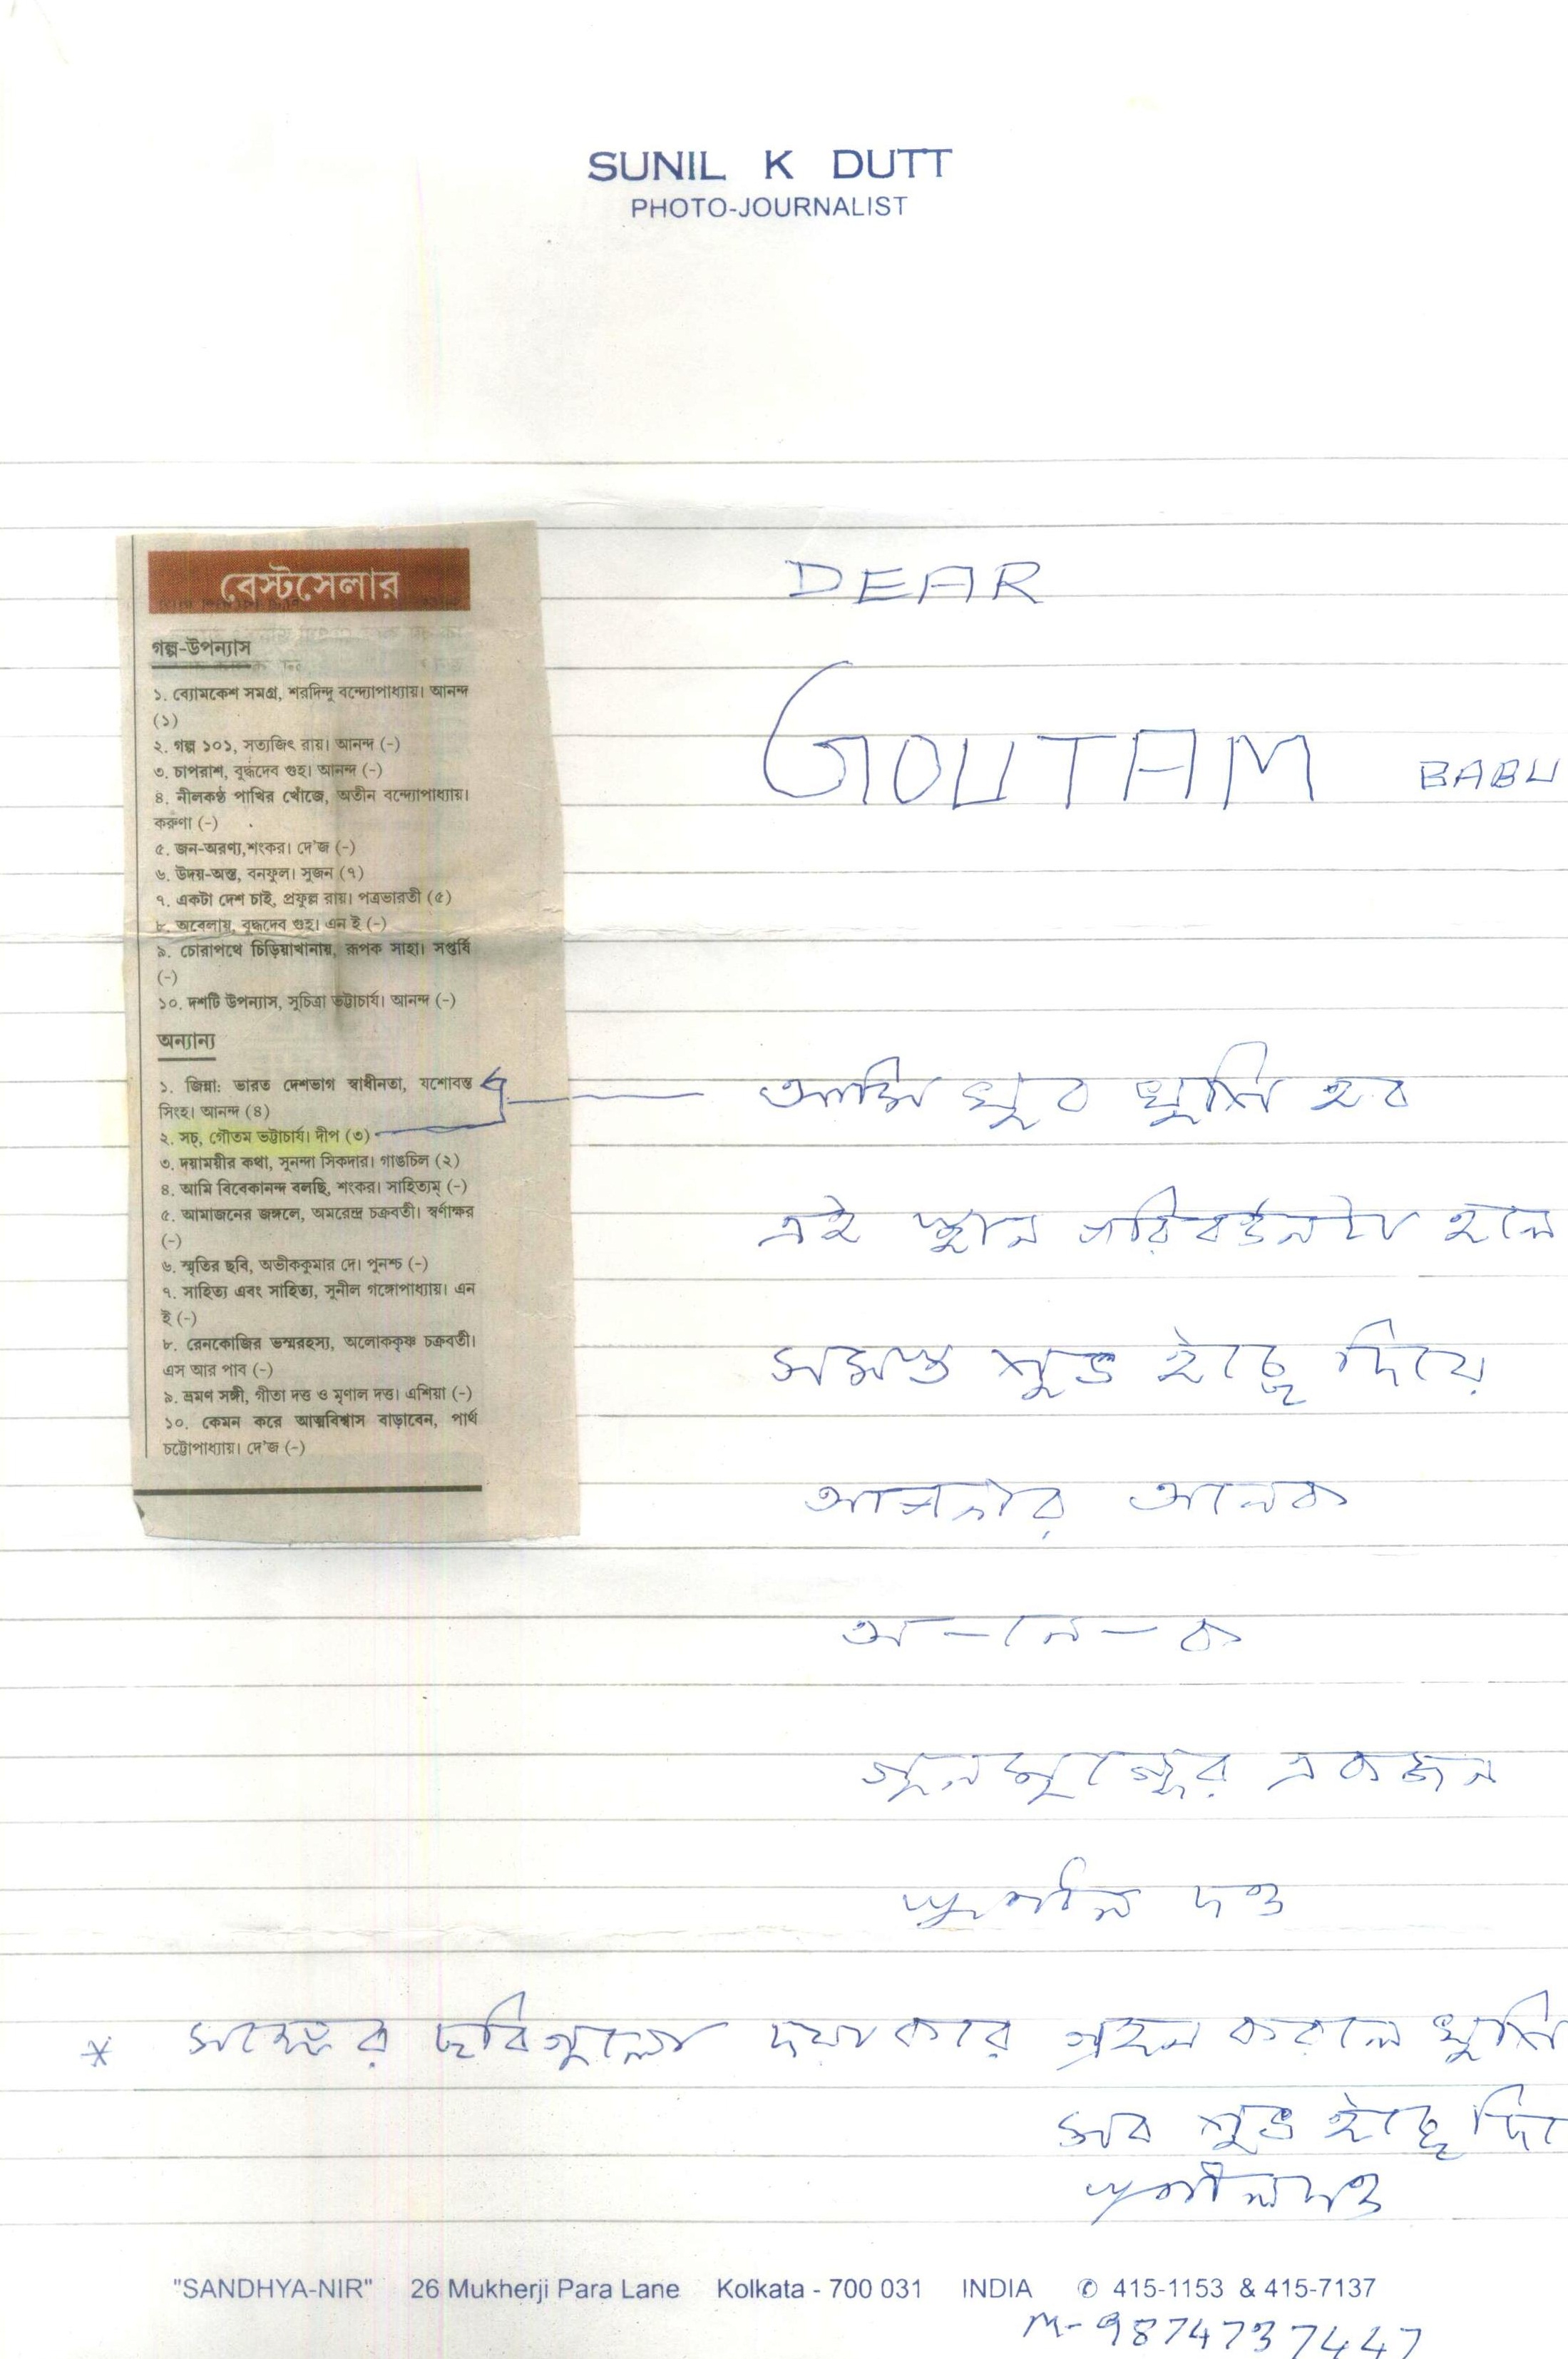 SUNIL K DUTT
PHOTO-JOURNALIST
বেস্টসেলার
গল্প-উপন্যাস
১. ব্যোমকেশ সমগ্র, শরদিন্দু বন্দ্যোপাধ্যায়। আনন্দ
(১)
২. গল্প ১০১, সত্যজিৎ রায়। আনন্দ (-)
৩. চাপরাশ, বুদ্ধদেব গুহ। আনন্দ (-)
৪. নীলকণ্ঠ পাখির খোঁজে, অতীন বন্দ্যোপাধ্যায়।
করুণা (-)
৫. জন-অরণ্য,শংকর। দে'জ (-)
৬. উদয়-অস্ত, বনফুল। সুজন (৭)
৭. একটা দেশ চাই, প্রফুল্ল রায়। পত্রভারতী (৫)
৮. অবেলায়, বুদ্ধদেব গুহ। এন ই (-)
৯. চোরাপথে চিড়িয়াখানায়, রূপক সাহা। সপ্তর্ষি
(-)
১০. দশটি উপন্যাস, সুচিত্রা ভট্টাচার্য। আনন্দ (-)
অন্যান্য
১. জিন্না: ভারত দেশভাগ স্বাধীনতা, যশোবন্ত
সিংহ। আনন্দ (৪)
২. সচ্, গৌতম ভট্টাচার্য। দীপ (৩)
৩. দয়াময়ীর কথা, সুনন্দা সিকদার। গাঙচিল (২)
৪. আমি বিবেকানন্দ বলছি, শংকর। সাহিত্যম্ (-)
৫. আমাজনের জঙ্গলে, অমরেন্দ্র চক্রবর্তী। স্বর্ণাক্ষর
(-)
৬. স্মৃতির ছবি, অভীককুমার দে। পুনশ্চ (-)
৭. সাহিত্য এবং সাহিত্য, সুনীল গঙ্গোপাধ্যায়। এন
ই (-)
৮. রেনকোজির ভস্মরহস্য, অলোককৃষ্ণ চক্রবর্তী।
এস আর পাব (-)
৯. ভ্রমণ সঙ্গী, গীতা দত্ত ও মৃণাল দত্ত। এশিয়া (-)
১০. কেমন করে আত্মবিশ্বাস বাড়াবেন, পার্থ
চট্টোপাধ্যায়। দে'জ (-)
DEAR
GOUTAM BABU
আমি খুব খুশি হব
এই স্থান পরিবর্তনটা হলে
সমস্ত শুভ ইচ্ছে দিয়ে
আপনার অনেক
অ-নে-ক
গুনমুগ্ধের একজন
সুনীল দত্ত
* সঙ্গের ছবিগুলো দয়া করে গ্রহন করলে খুশি
সব শুভ ইচ্ছে দি
সুনীল দত্ত
"SANDHYA-NIR" 26 Mukherji Para Lane Kolkata - 700 031 INDIA ✆ 415-1153 & 415-7137
M-9874737447